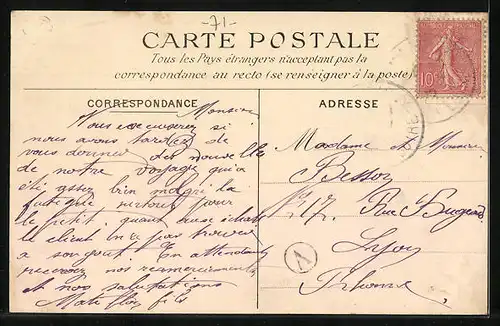 -71-
CARTE POSTALE
Tous les Pays étrangers n'acceptant pas la
correspondance au recto (se renseigner à la poste)
10c
CORRESPONDANCE
ADRESSE
Monsieur
Vous excuserez si
nous avons tardez de
vous donner des nouvelle
de notre voyage qui a
été assez bien malgré la
fatigue surtout pour
le petit. quant
le client pas trouver
a son gout. En attendant
recevez nos remerciements
et nos salutations
fils
Madame et Monsieur
Besson
217, Rue
Lyon
Rhone